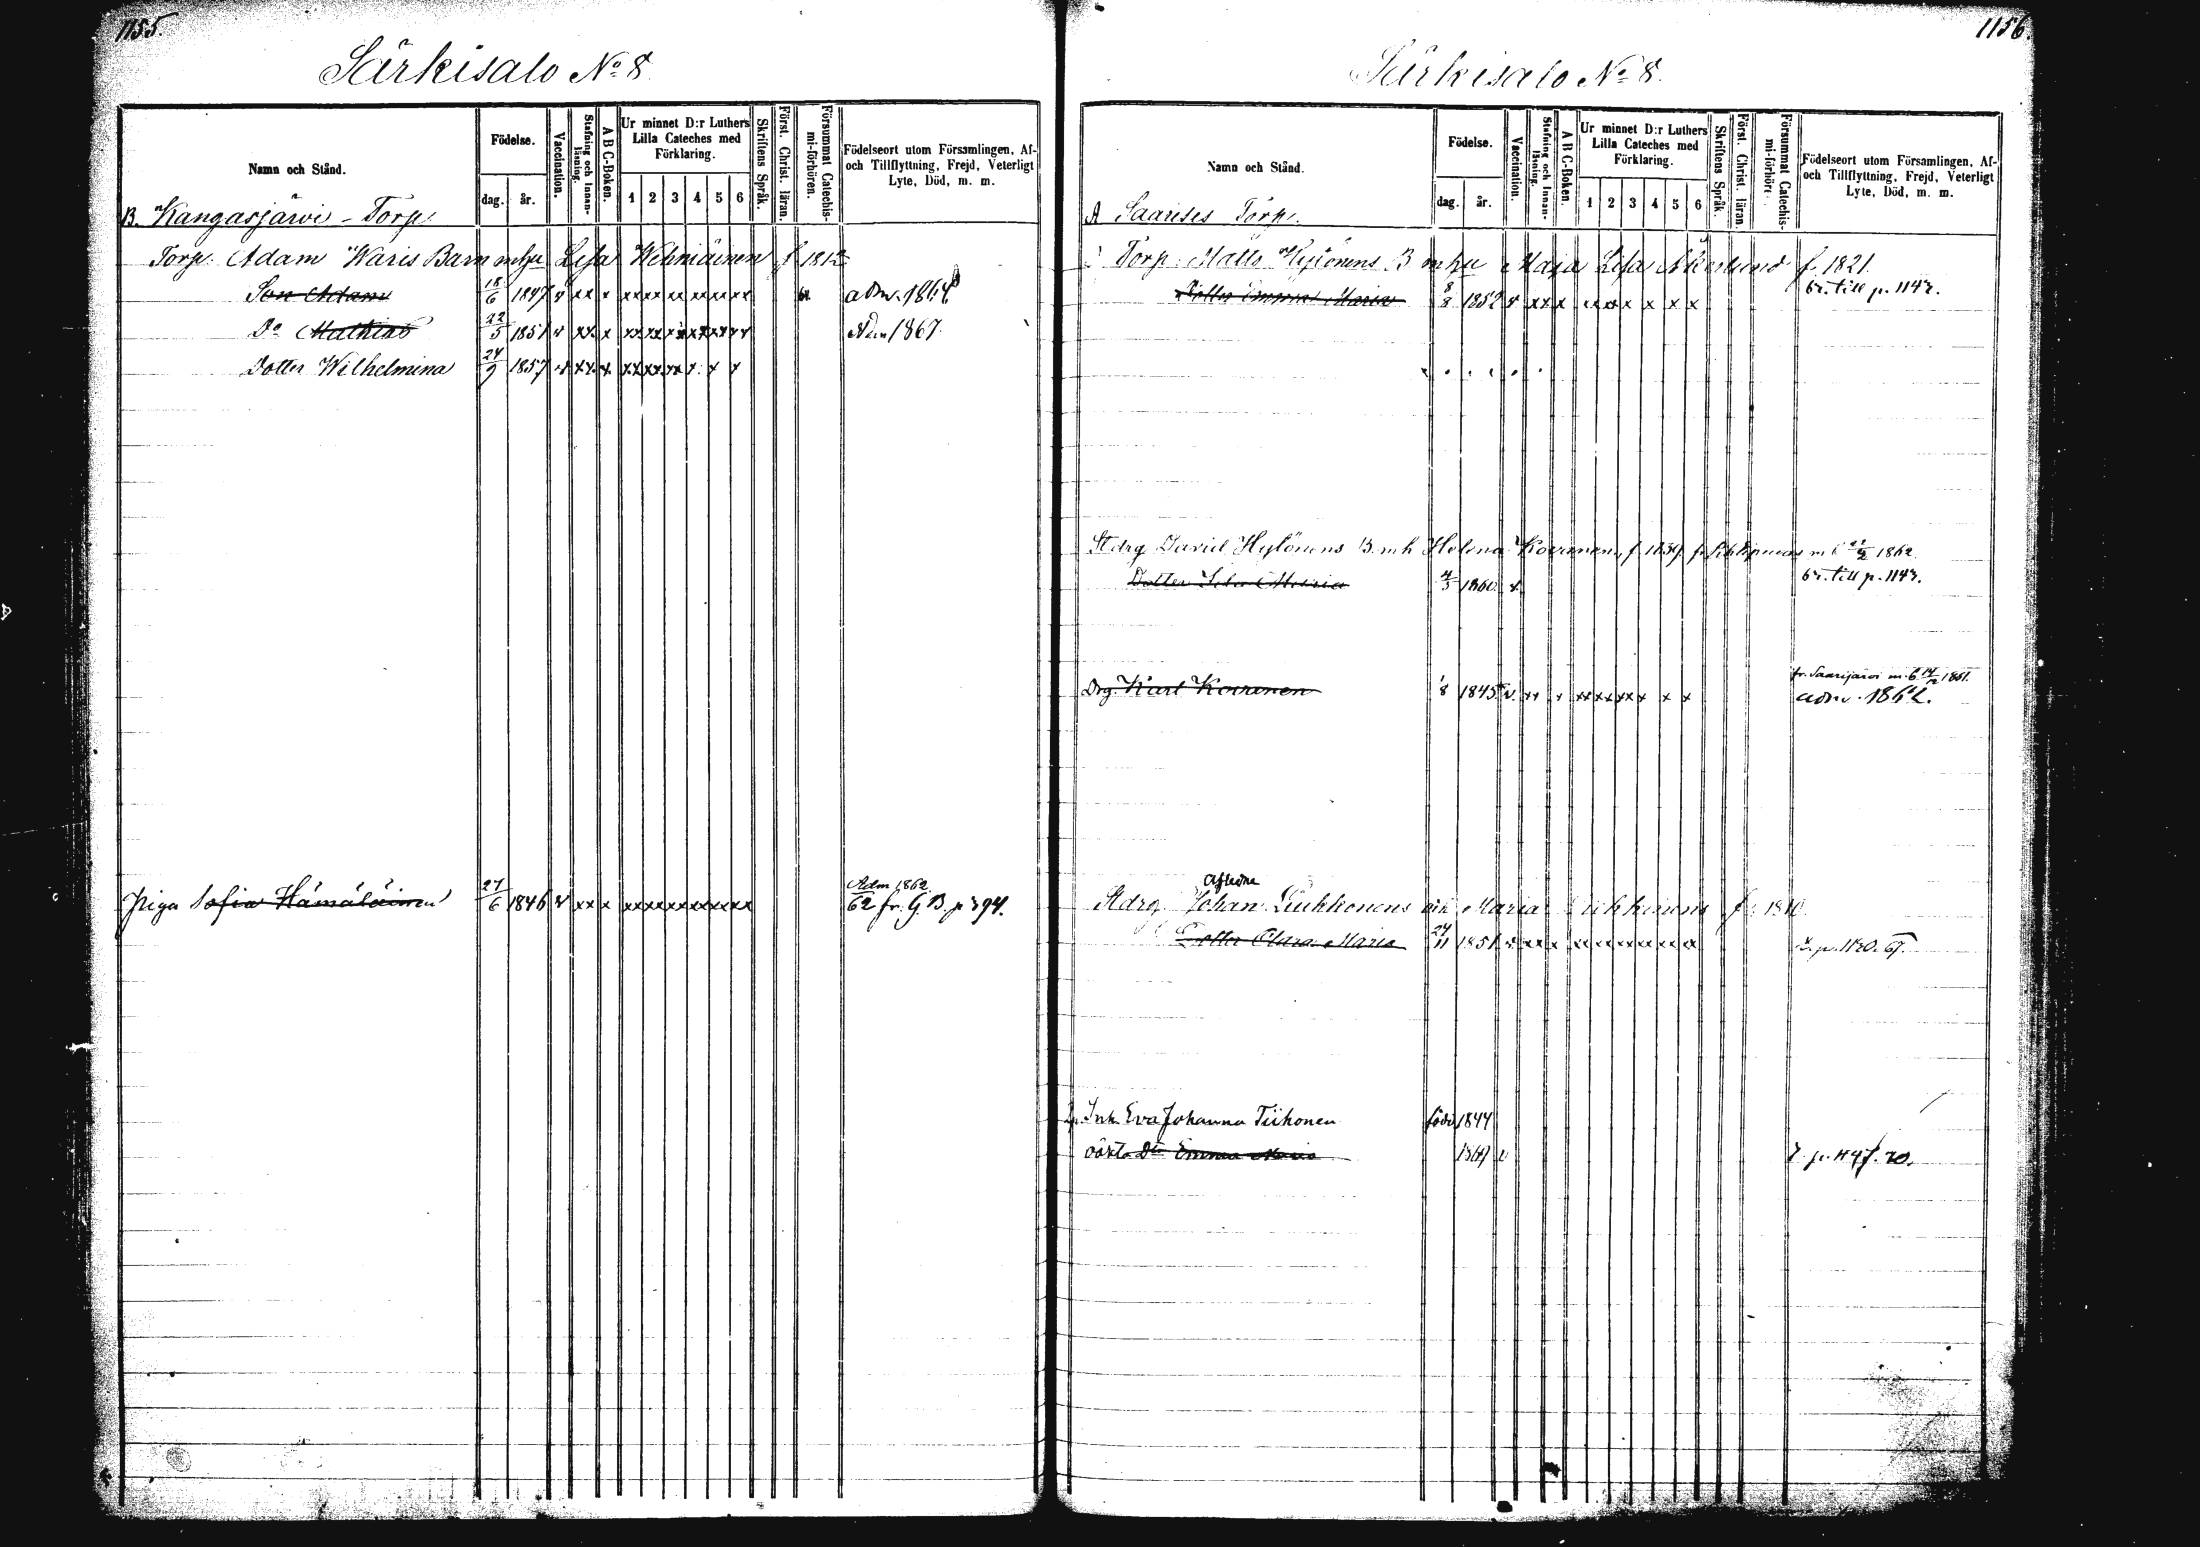 1155.
Särkisalo No 8.
Namn och Stånd.
Födelse.
dag. år.
Vaccination.
Stafning och Innanläsning.
A B C-Boken.
Ur minnet D:r Luthers Lilla Cateches med Förklaring.
1 2 3 4 5 6
Skriftens Språk.
Först. Christ. läran.
Försummat Catechismi-förhören.
Födelseort utom Församlingen, Af- och Tillflyttning, Frejd, Veterligt Lyte, Död, m. m.
B. Kangasjärwi - Torp.
Torp. Adam Waris Barn mhu Lisa Wehniäinen f 1812
Son Adam 18/6 1847 v xx x xx xx xx xx xx xx adm. 1864
Do Mathias 22/5 1851 v xx x xx xx xx xx xx xx Adm 1867.
Dotter Wilhelmina 24/9 1857 v xx x xx xx xx x x x
Adm 1862
Piga Sofia Hämäläinen 27/6 1846 v xx x xx xx xx xx xx xx 62 fr. G. B p 394.
1156.
Särkisalo No 8.
Namn och Stånd.
Födelse.
dag. år.
Vaccination.
Stafning och Innanläsning.
A B C-Boken.
Ur minnet D:r Luthers Lilla Cateches med Förklaring.
1 2 3 4 5 6
Skriftens Språk.
Först. Christ. läran.
Försummat Catechismi-förhör
Födelseort utom Församlingen, Af- och Tillflyttning, Frejd, Veterligt Lyte, Död, m. m.
A Saarises Torp.
Torp. Matts Hylönens B m hu Maja Lisa Åkerlund f. 1821.
Dotter Emma Maria 8/8 1852 v xx x xx xx x x x x till p. 1147.
Stdrg David Hylönens B. m h Helena Kovanen f 1839 1862.
Dotter Maria 4/3 1860 v till p. 1147.
fr. Saarijärvi 1861.
Drg Karl Kovanen 1/8 1845 v. xx x xx xx xx x x x adm. 1862.
Aflidne
Stdrg Johan Liukkonens och Maria f. 1810
Dotter Clara Maria 24/11 1851 v xx x xx xx xx xx xx x p. 1120. 67.
Inh. Eva Johanna Tiihonen född 1844
oäkta Dtr Emma Maria 1869 v